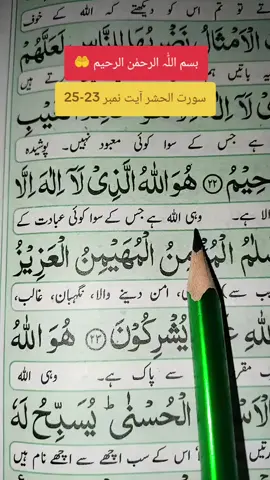 بسم اللّٰہ الرحمٰن الرحیم 🤲
سورت الحشر آیت نمبر 23-25
تے تو تم اس کو دیکھتے کہ اللہ کے خوف
الْاَمْثَالُ نَضْرِبُهَا لِلنَّاسِ لَعَلَّهُمْ
باتیں
لَاۤ اِلٰهَ اِلَّا الْغَيْبِ
ہے جس کے سوا کوئی معبود نہیں۔ پوشیدہ
حِيْمُ ﴿٢٢﴾ هُوَ اللّٰهُ الَّذِيْ لَاۤ اِلٰهَ اِلَّا
الا ہے۔ وہی اللہ ہے جس کے سوا کوئی عبادت کے
سلٰمُ الْمُؤْمِنُ الْمُهَيْمِنُ الْعَزِيْزُ
امن دینے والا، نگہبان، غالب،
اللّٰهِ يُشْرِكُوْنَ ﴿٢٣﴾ هُوَ اللّٰهُ
سے پاک ہے۔ وہی اللہ
الْاَسْ الْحُسْنٰى ؕ يُسَبِّحُ لَهٗ
اس کے سب اچھے سے اچھے نام ہیں